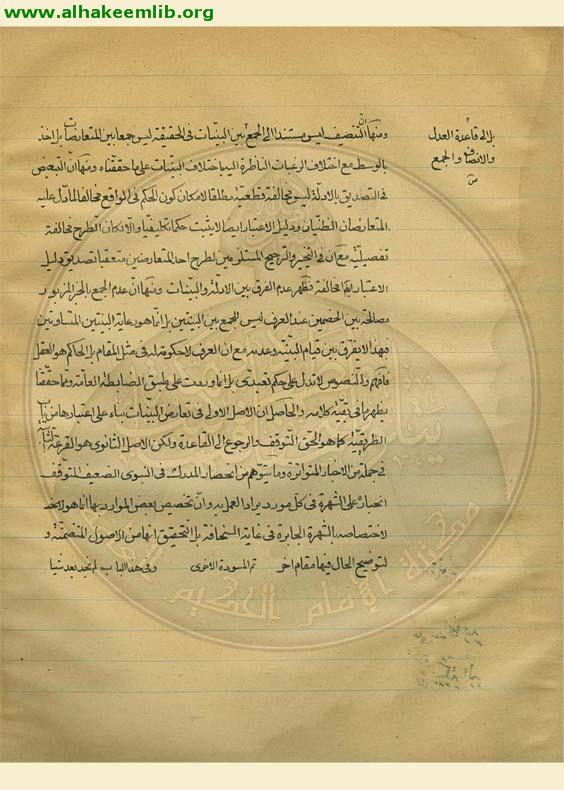 www.alhakeemlib.org
ومنها أن التنصيف ليس مستندا الى الجمع بين البينات فى الحقيقة ليس جمعا بين المتعارضات بل اخذ
بل الى قاعدة العدل
والانصاف والجمع
بالوسط مع اختلاف الرغبات الناظرة اليها اختلاف البينات على ما حققناه ومنها ان التبعض
فى التصديق بالادلة ليس مخالفة قطعية مطلقا لامكان كون الحكم فى الواقع مخالفا لما دل عليه
المتعارضان الظنيان ودليل الاعتبار ايضا لا يثبت حكما تكليفيا والا لكان الطرح مخالفة
تفصيلية مع ان فى التخيير والترجيح المستلزمين لطرح احد المتعارضين متعقبا تصديق دليل
الاعتبار ايضا مخالفة فظهر عدم الفرق بين الادلة والبينات ومنها ان عدم الجمع بالنحو المزبور
مصالحة بين الخصمين عند العرف ليس للجمع بين البينتين بل انما هو رعاية البينتين المتساويتين
فهذا لا يفرق بين قيام البينة وعدمه مع ان العرف لا حكومة له فى مثل المقام بل الحاكم هو العقل
فافهم والنصوص لا تدل على حكم تعبدى بل انما وردت على طبق الضابطة العامة وبما حققنا
يظهر ما فى بقية كلامه والحاصل ان الاصل الاولى فى تعارض البينات بناء على اعتبارها من باب
الطريقية كما هو الحق التوقف والرجوع الى القاعدة ولكن الاصل الثانوى هو القرعة
فى جملة من الاخبار المتواترة وما يتوهم من انحصار المدرك فى النبوى الضعيف المتوقف
انجباره على الشهرة فى كل مورد يراد العمل به وان تخصص بعض الموارد بها انما هو لاجل
لاختصاصه بالشهرة الجابرة فى غاية السخافة بل التحقيق انها من الاصول المتضمنة و
لتوضيح الحال فيها مقام اخر تم المسودة الاخرى وفى هذا الباب لم نجد بعد شيئا